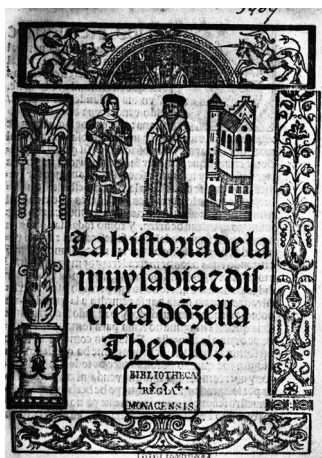 La historia de la
muy sabia ⁊ dis
creta dõzella
Theodor.
BIBLIOTHECA
1554.
REGIA
MONACENSIS.